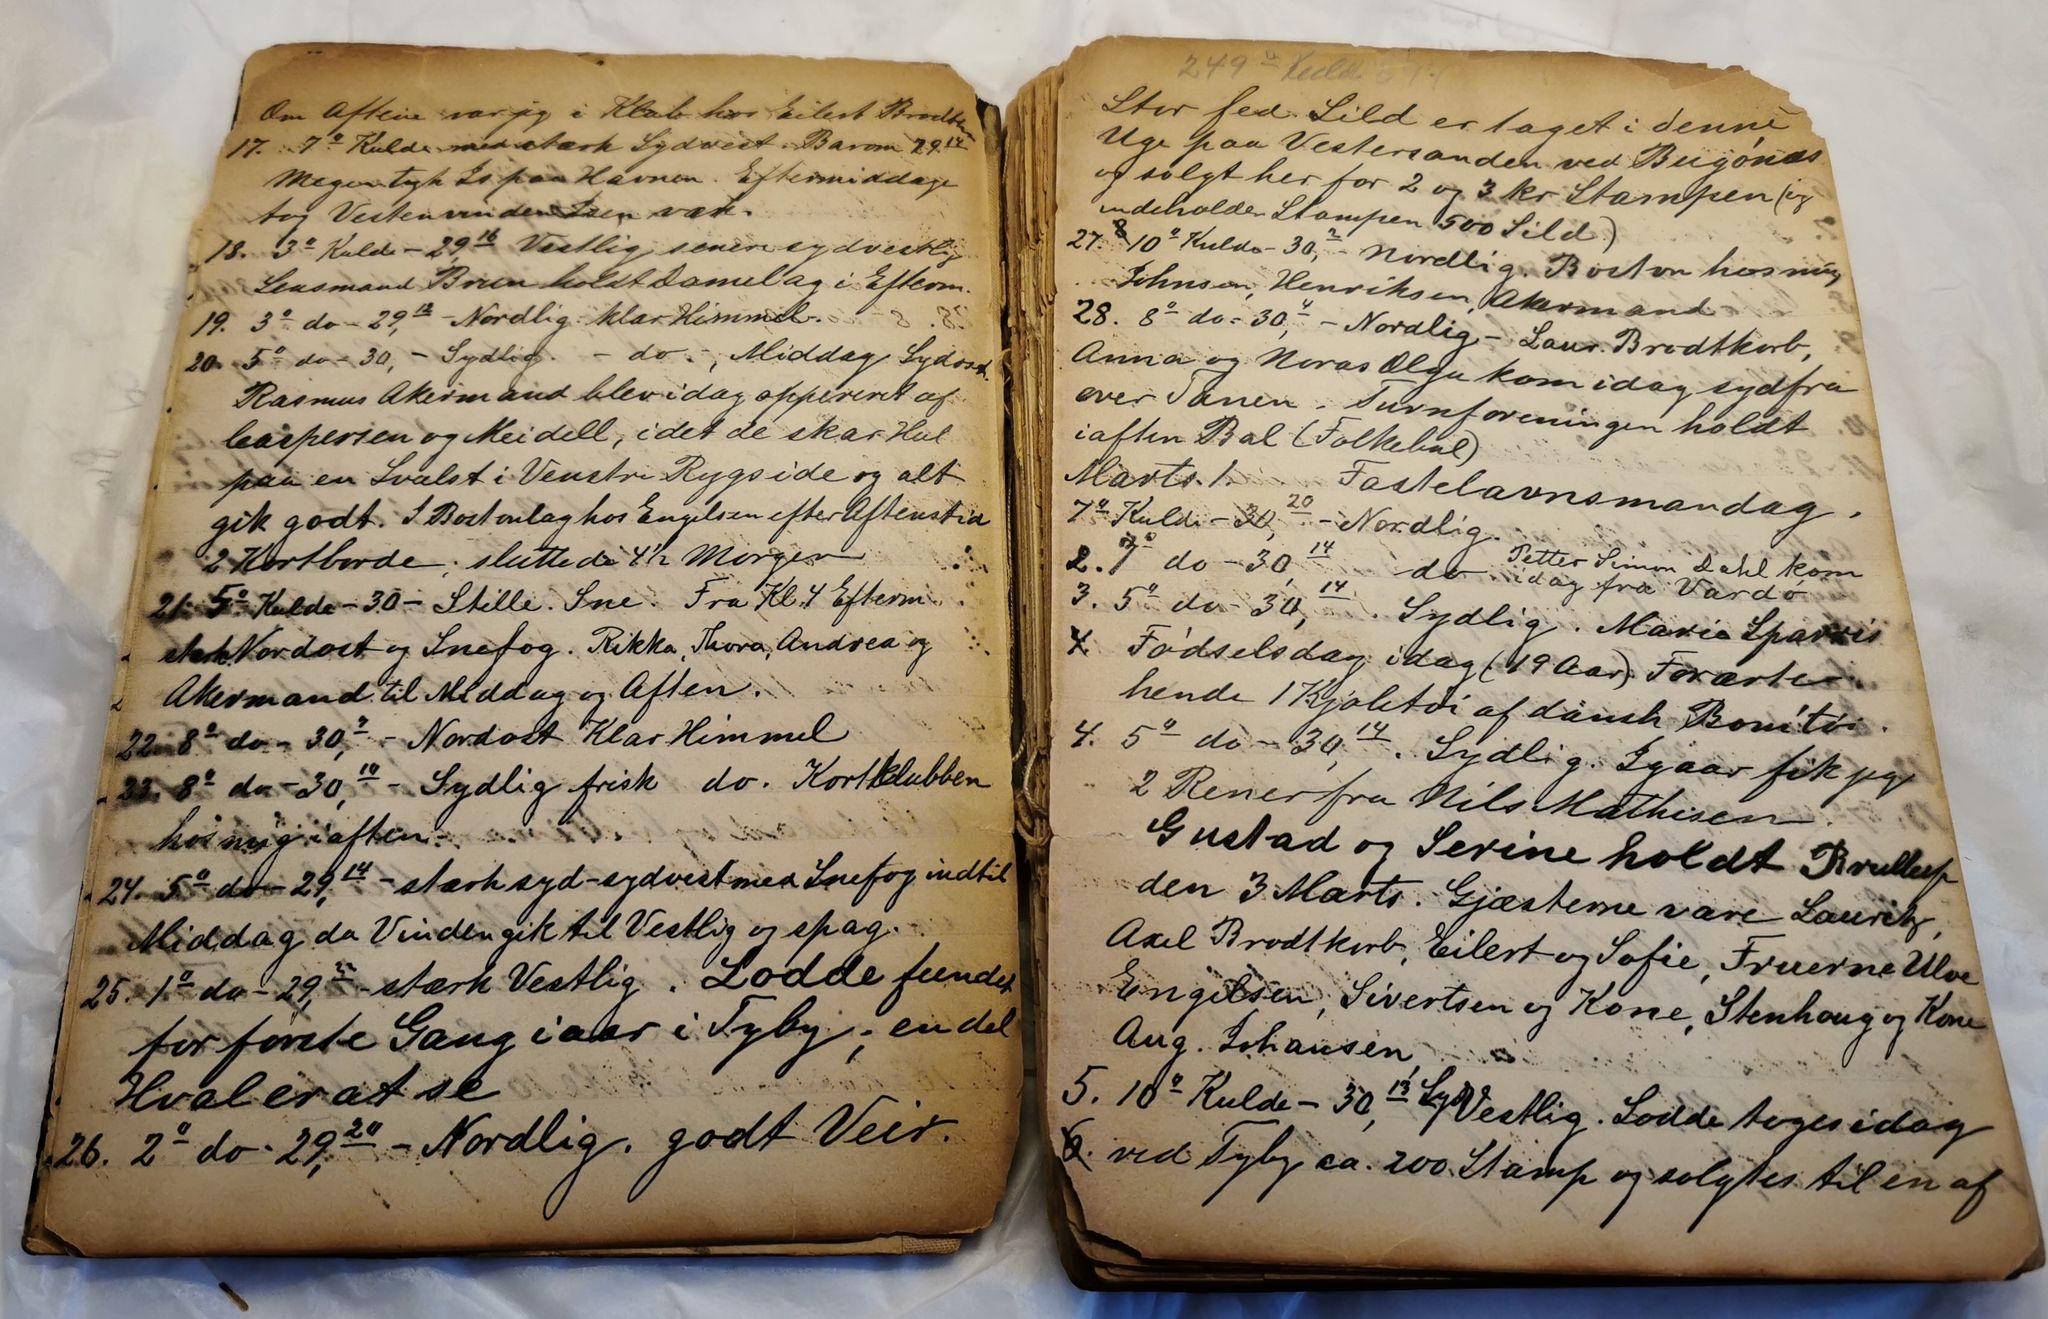 Om Aftene var jeg i Klub hos Eilert Brodtkorb
17. 7° Kulde med stærk Sydvest. Barom 29.14
Megen tyk Is paa Havnen. Eftermiddage
tog Vestenvinden Isen væk.
18. 3° Kulde - 29,16 Vestlig senere sydvestlig
Lensmand Brun holdt Damelag i Efterm.
19. 3° do - 29,12 - Nordlig klar Himmel.
20. 5° do - 30, - Sydlig. - do -, Middag Sydost.
Rasmus Akermand blev idag oppereret af
Caspersen og Meidell, idet de skar Hul
paa en Svulst i Venstre Rygside og alt
gik godt. I Bostonlag hos Engelsen efter Aftenstid
2 Kortborde, sluttede 4½ Morgen
21. 5° Kulde - 30 - Stille. Sne. Fra Kl. 4 Efterm
stærk Nordost og Snefog. Rikka, Thora, Andrea og
Akermand til Middag og Aften.
22. 8° do - 30, - Nordost Klar Himmel
23. 8° do - 30,10 - Sydlig frisk do. Kortklubben
hos mig iaften.
24. 5° do - 29,14 - stærk syd-sydvest med Snefog indtil
Middag da Vinden gik til Vestlig og spag.
25. 1° do - 29, - stærk Vestlig. Lodde fundet
for første Gang iaar i Tyby; en del
Hval er at se
26. 2° do - 29,20 - Nordlig. godt Veir.
249° Kulde
Stor fed Sild er taget i denne
Uge paa Vestersanden ved Bugønæs
og solgt her for 2 og 3 kr Stampen (og
indeholder Stampen 500 Sild)
27. 10° Kulde - 30,2 - Nordlig. Boston hos mig
Johnsen, Henriksen, Akermand
28. 8° do - 30,4 - Nordlig - Laur. Brodtkorb,
Anna og Noras Olga kom idag sydfra
over Tanen. Turnforeningen holdt
iaften Bal (Folkebal)
Marts. 1. Fastelavnsmandag.
7° Kulde - 30,20 - Nordlig.
2. 7° do - 30,14 do Petter Simon Dahl kom
idag fra Vardø
3. 5° do - 30,14. Sydlig. Marie Sparres
4 Fødselsdag idag (19 Aar). Forærte
hende 1 Kjoletøi af dansk Bomtøi.
4. 5° do - 30,14. Sydlig. Igaar fik jeg
2 Rener fra Nils Mathisen.
Gustad og Serine holdt Brullup
den 3 Marts. Gjæsterne vare Lauritz,
Axel Brodtkorb, Eilert og Sofie, Fruerne Ulve
Engelsen, Sivertsen og Kone, Stenhoug og Kone
Aug. Johansen
5. 10° Kulde - 30,13 Syd Vestlig. Lodde toges idag
6. ved Tyby ca. 200 Stamp og solgtes til en af